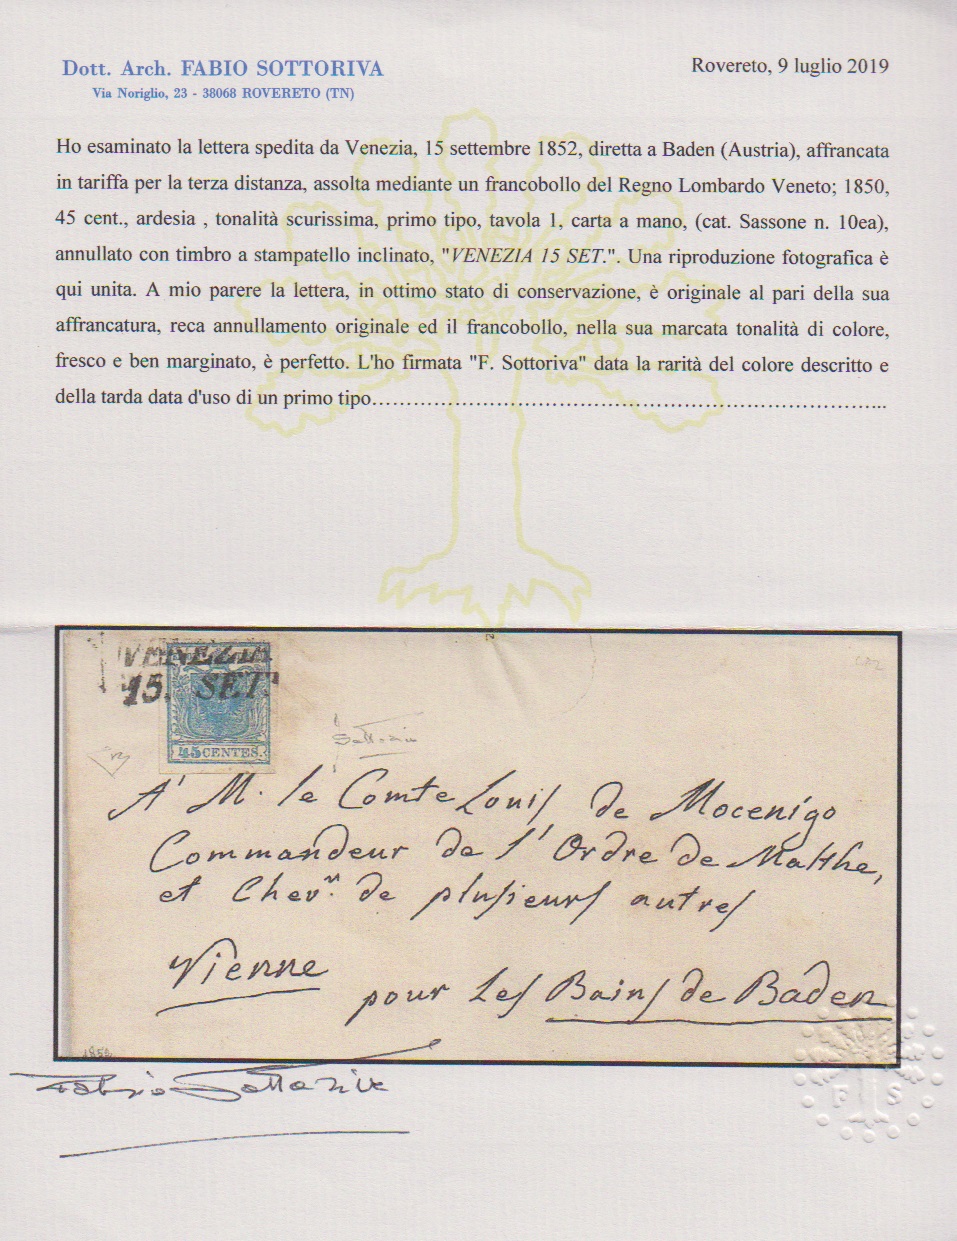 Dott. Arch. FABIO SOTTORIVA
Via Noriglio, 23 - 38068 ROVERETO (TN)
Rovereto, 9 luglio 2019
Ho esaminato la lettera spedita da Venezia, 15 settembre 1852, diretta a Baden (Austria), affrancata
in tariffa per la terza distanza, assolta mediante un francobollo del Regno Lombardo Veneto; 1850,
45 cent., ardesia , tonalità scurissima, primo tipo, tavola 1, carta a mano, (cat. Sassone n. 10ea),
annullato con timbro a stampatello inclinato, "VENEZIA 15 SET.". Una riproduzione fotografica è
qui unita. A mio parere la lettera, in ottimo stato di conservazione, è originale al pari della sua
affrancatura, reca annullamento originale ed il francobollo, nella sua marcata tonalità di colore,
fresco e ben marginato, è perfetto. L'ho firmata "F. Sottoriva" data la rarità del colore descritto e
della tarda data d'uso di un primo tipo……………………………………………………………………..
VENEZIA
15. SET.
45 CENTES.
Sottoriva
A' M. le Comte Louis de Mocenigo
Commandeur de l'Ordre de Malthe,
et Chev.r de plusieurs autres
Vienne
pour Les Bains de Baden
1852
Fabio Sottoriva
F S